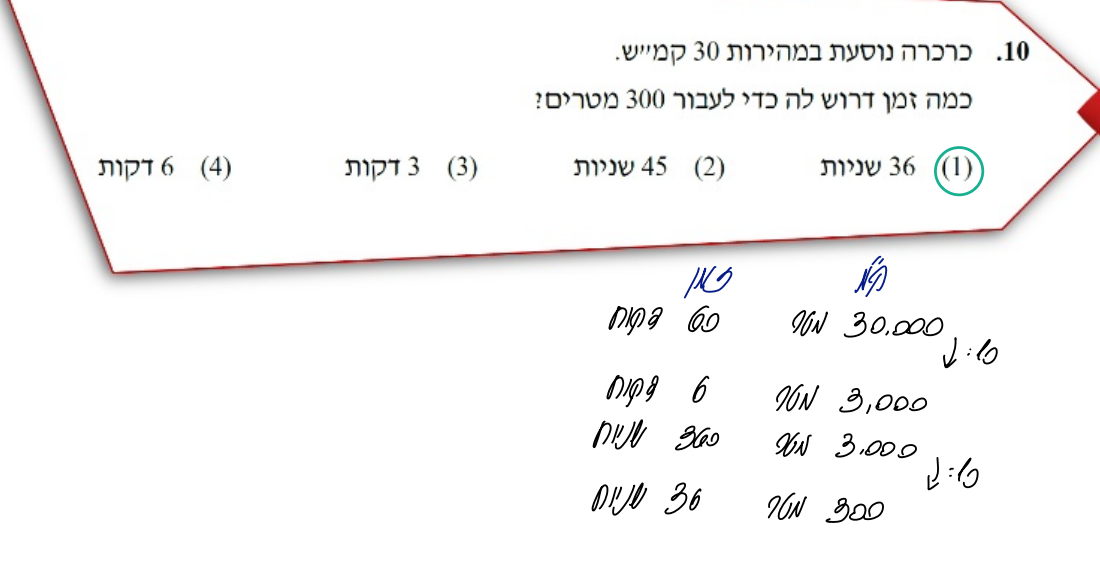 10. כרכרה נוסעת במהירות 30 קמ״ש.
כמה זמן דרוש לה כדי לעבור 300 מטרים?
(1) 36 שניות (2) 45 שניות (3) 3 דקות (4) 6 דקות
ק״מ זמן
30,000 מטר 60 דקות
:10
3,000 מטר 6 דקות
3,000 מטר 360 שניות
:10
300 מטר 36 שניות